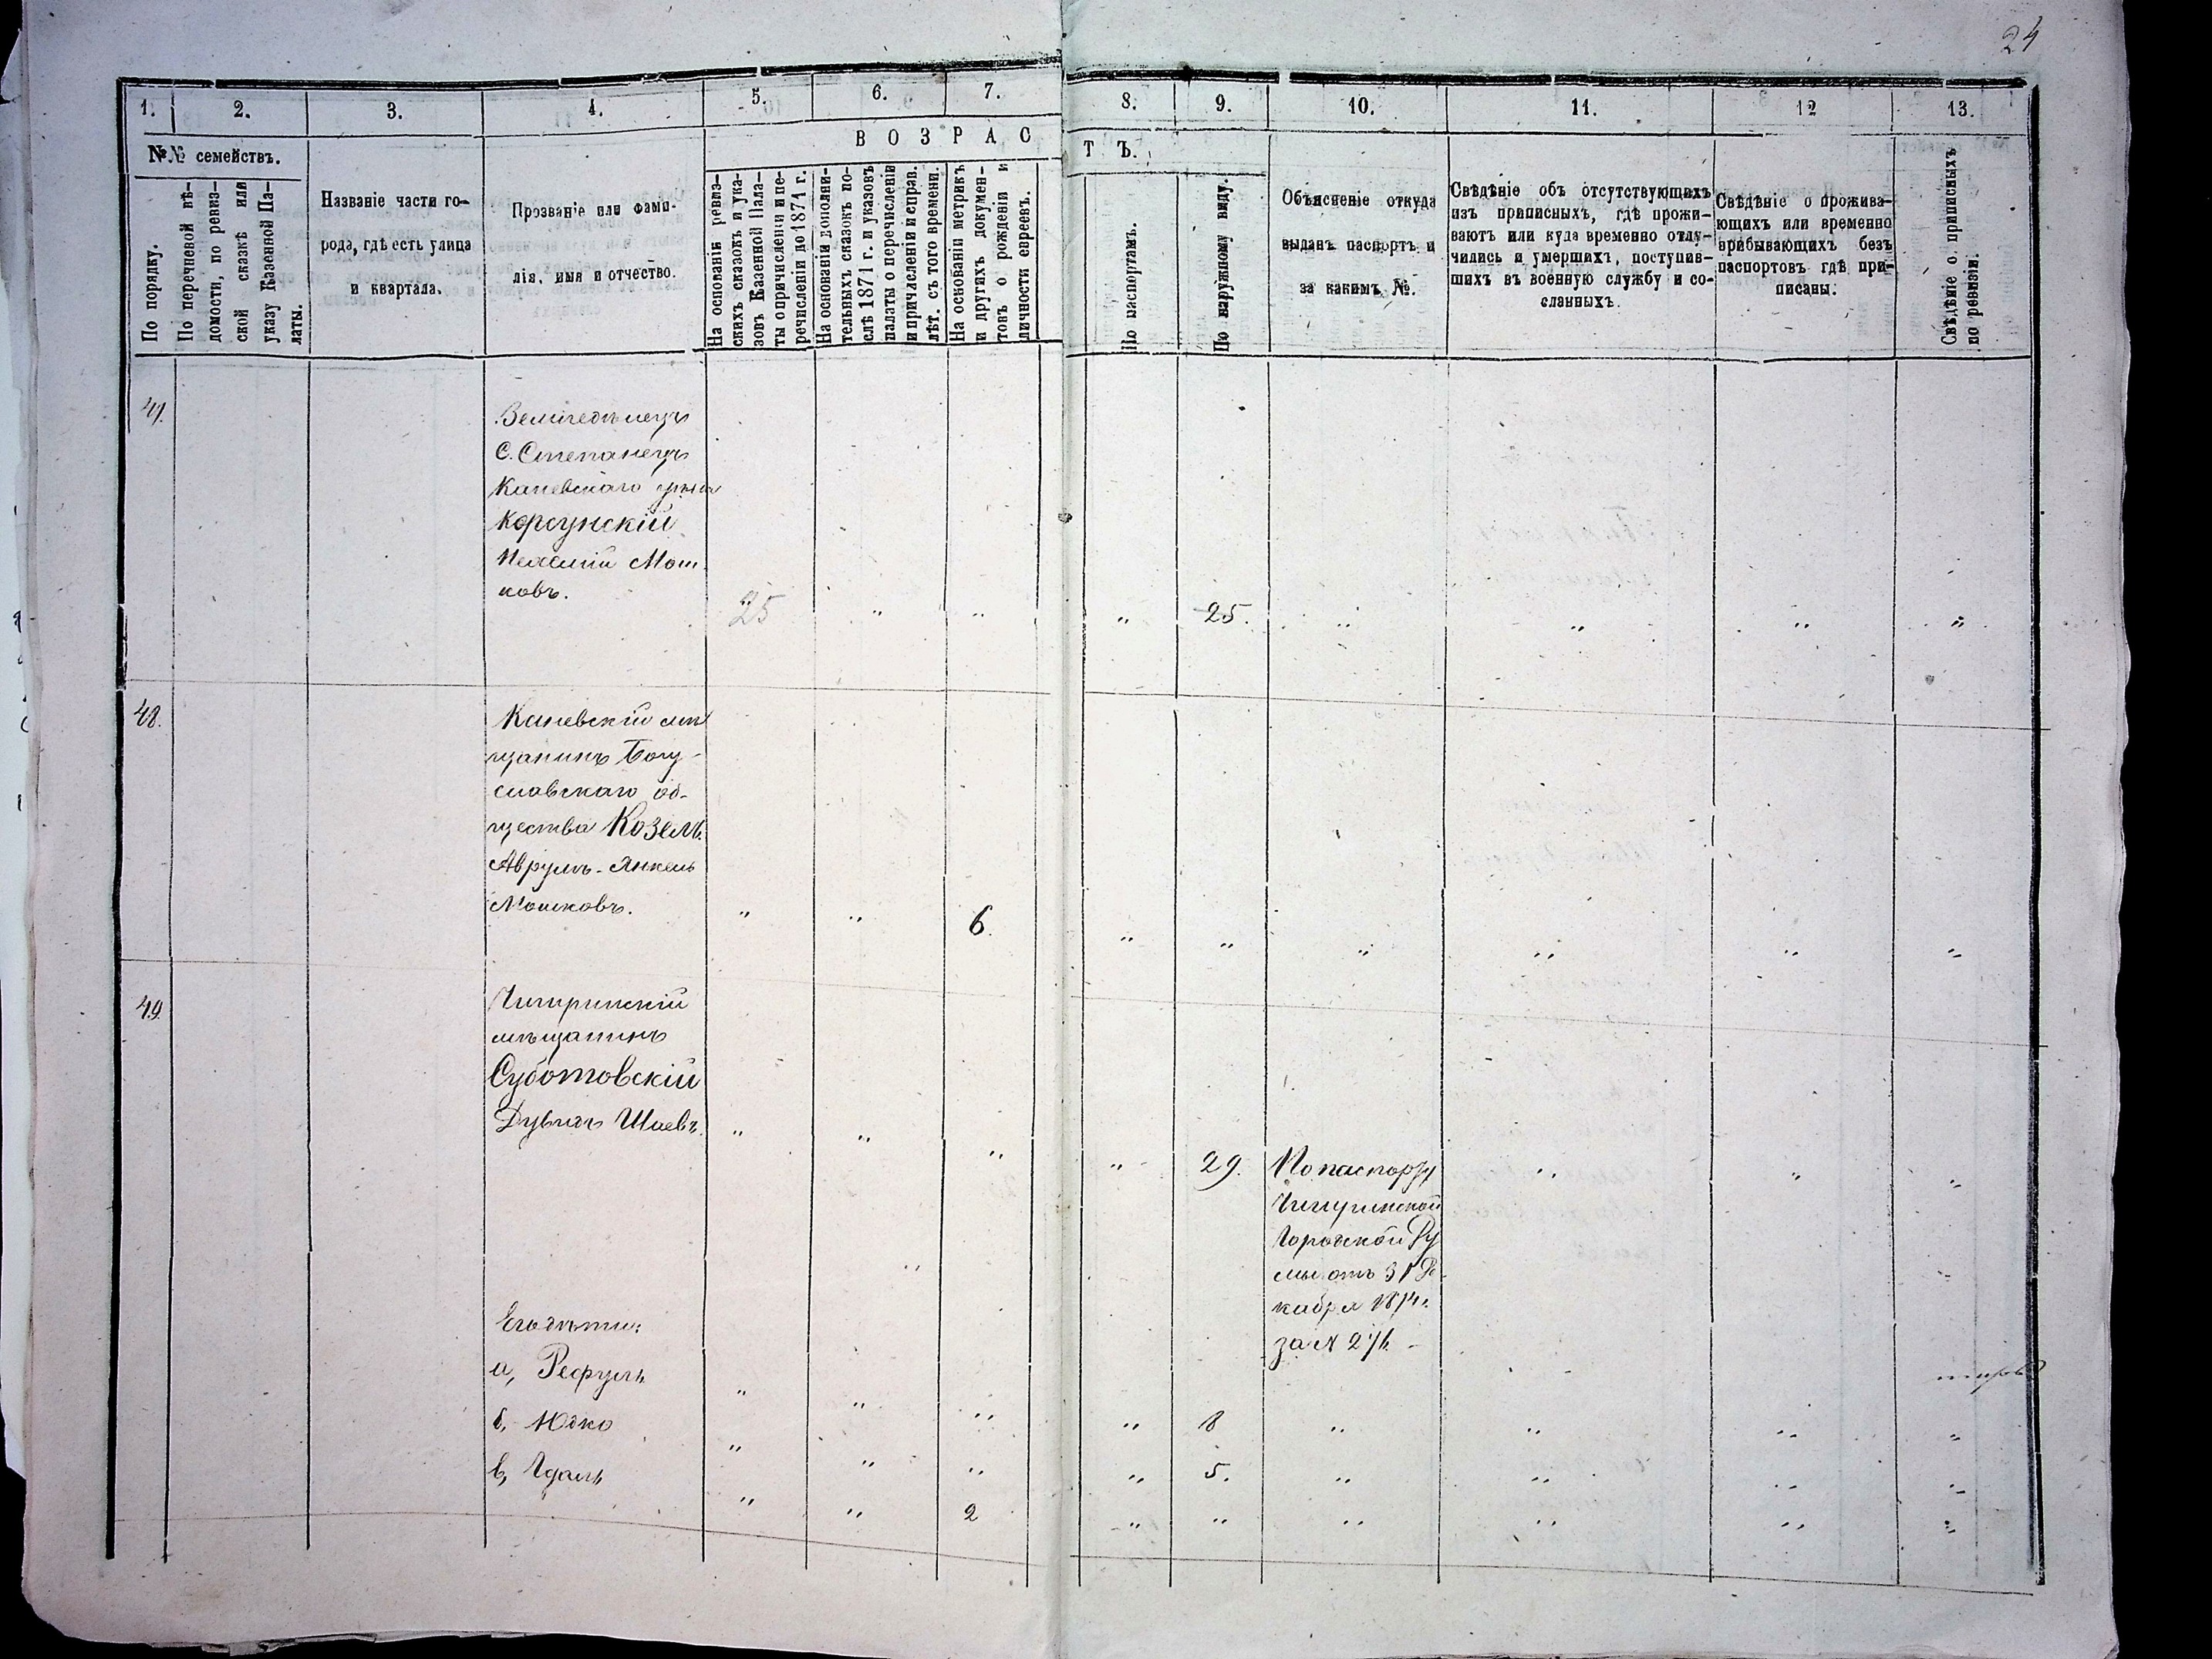 24
1. 2. 3. 4. 5. 6. 7. 8. 9. 10. 11. 12 13.
№№ семействъ.
По порядку.
По перечневой вѣ-
домости, по ревиз-
ской сказкѣ или
указу Казенной Па-
латы.
Названіе части го-
рода, гдѣ есть улица
и квартала.
Прозваніе или фами-
лія, имя и отчество.
ВОЗРАСТЪ.
На основаніи ревиз-
скихъ сказокъ и ука-
зовъ Казенной Пала-
ты о причисленіи и пе-
речисленіи до 1871 г.
На основаніи дополни-
тельныхъ сказокъ по-
слѣ 1871 г. и указовъ
палаты о перечисленіи
и причисленіи и справ.
лѣт. съ того времени.
На основаніи метрикъ
и другихъ докумен-
товъ о рожденіи и
личности евреевъ.
По паспортамъ.
По наружному виду.
Объясненіе откуда
выданъ паспортъ и
за какимъ №.
Свѣдѣніе объ отсутствующихъ
изъ приписныхъ, гдѣ прожи-
ваютъ или куда временно отлу-
чились и умершихъ, поступив-
шихъ въ военную службу и со-
сланныхъ.
Свѣдѣніе о прожива-
ющихъ или временно
прибывающихъ безъ
паспортовъ гдѣ при-
писаны.
Свѣдѣніе о приписныхъ
по ревизіи.
47.
С. Степанецъ
Каневскаго уѣзда
Корсунскій
Мош
ковъ.
25 " " " 25. " " " "
48.
Каневскій мѣ
щанинъ Богу-
славскаго об-
щества Козелъ
Аврумъ-Янкель
Мошковъ.
" " 6. " " " " " "
49.
Чигиринскій
мѣщанинъ
Суботовскій
Дувидъ Шаевъ
" " " " 29. По паспорту " " "
Чигиринской
Городской Ду
мы отъ 31 Де-
кабря 1874 г.
за №
Его дѣти:
а, Рефулъ " " " " 8 " " " "
б, Юдко " " " " 5. " " " "
в, Гдаль " " 2 " " " " " "